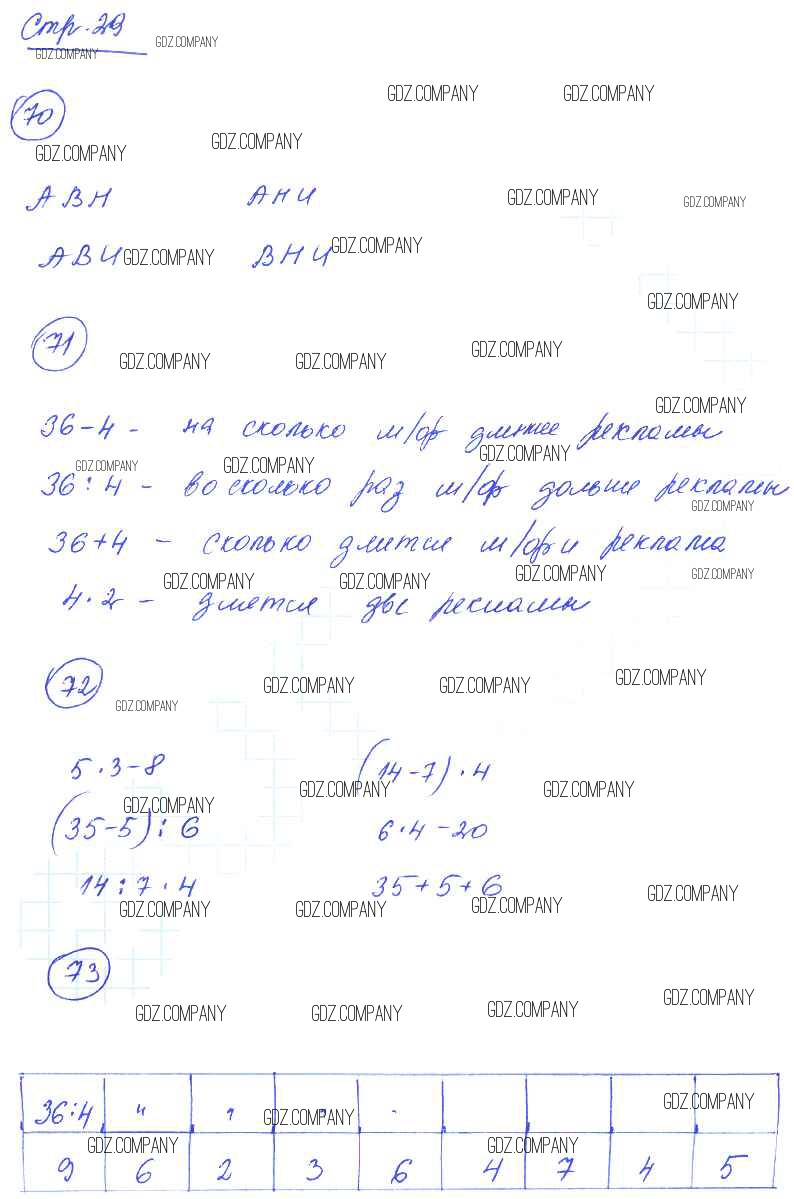 Стр. 29
GDZ.COMPANY
GDZ.COMPANY
GDZ.COMPANY GDZ.COMPANY
70
GDZ.COMPANY
GDZ.COMPANY
АВН АНИ GDZ.COMPANY GDZ.COMPANY
АВИ GDZ.COMPANY ВНИ GDZ.COMPANY
GDZ.COMPANY
71
GDZ.COMPANY GDZ.COMPANY GDZ.COMPANY
GDZ.COMPANY
36-4 - на сколько м/ф длиннее рекламы
GDZ.COMPANY GDZ.COMPANY GDZ.COMPANY
36:4 - во сколько раз м/ф дольше рекламы
GDZ.COMPANY
36+4 - сколько длится м/ф и реклама
GDZ.COMPANY GDZ.COMPANY GDZ.COMPANY GDZ.COMPANY
4·2 - длятся две рекламы
72
GDZ.COMPANY GDZ.COMPANY GDZ.COMPANY
GDZ.COMPANY
5·3-8 (14-7)·4
GDZ.COMPANY GDZ.COMPANY GDZ.COMPANY
(35-5):6 6·4-20
14:7·4 35+5+6
GDZ.COMPANY GDZ.COMPANY GDZ.COMPANY GDZ.COMPANY
73
GDZ.COMPANY GDZ.COMPANY GDZ.COMPANY GDZ.COMPANY
36:4 " GDZ.COMPANY GDZ.COMPANY
GDZ.COMPANY GDZ.COMPANY
9 6 2 3 6 4 7 4 5